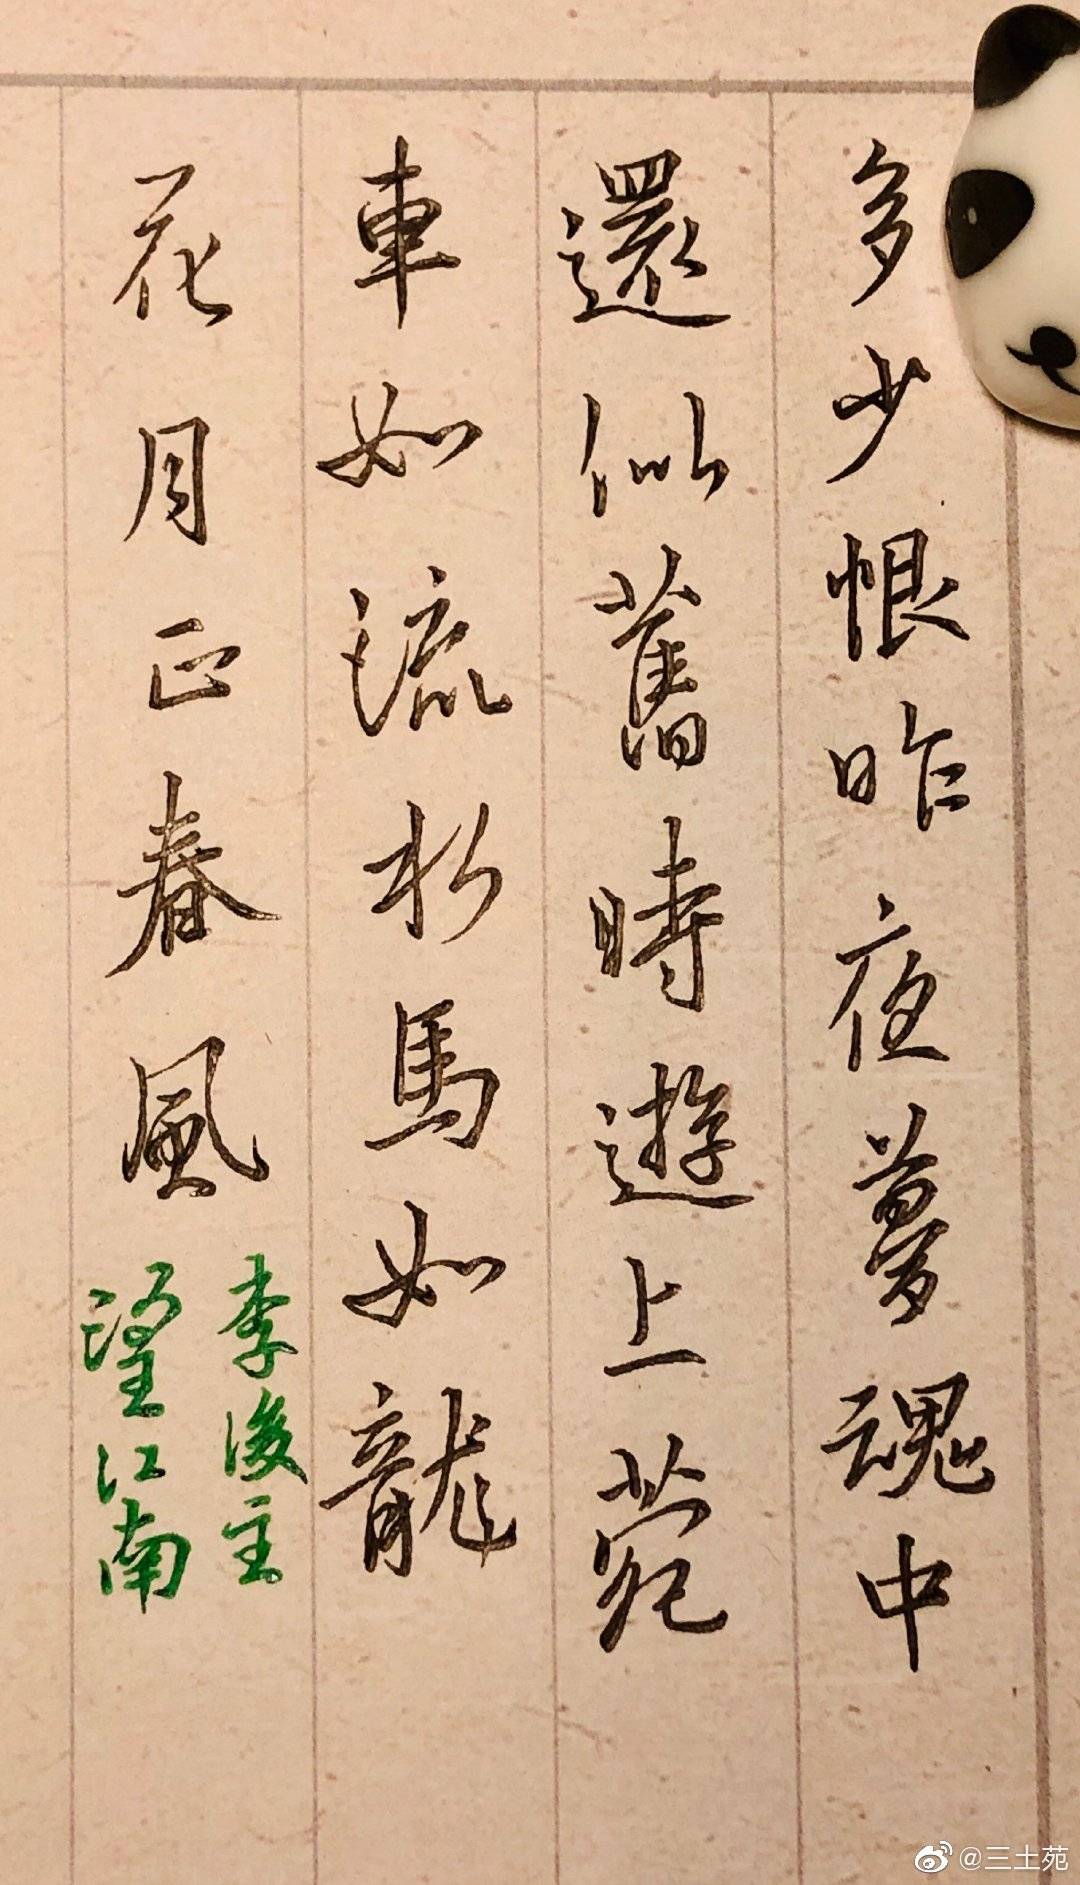 多少恨昨夜夢魂中
還似舊時遊上苑
車如流水馬如龍
花月正春風
李後主
望江南
@三土苑